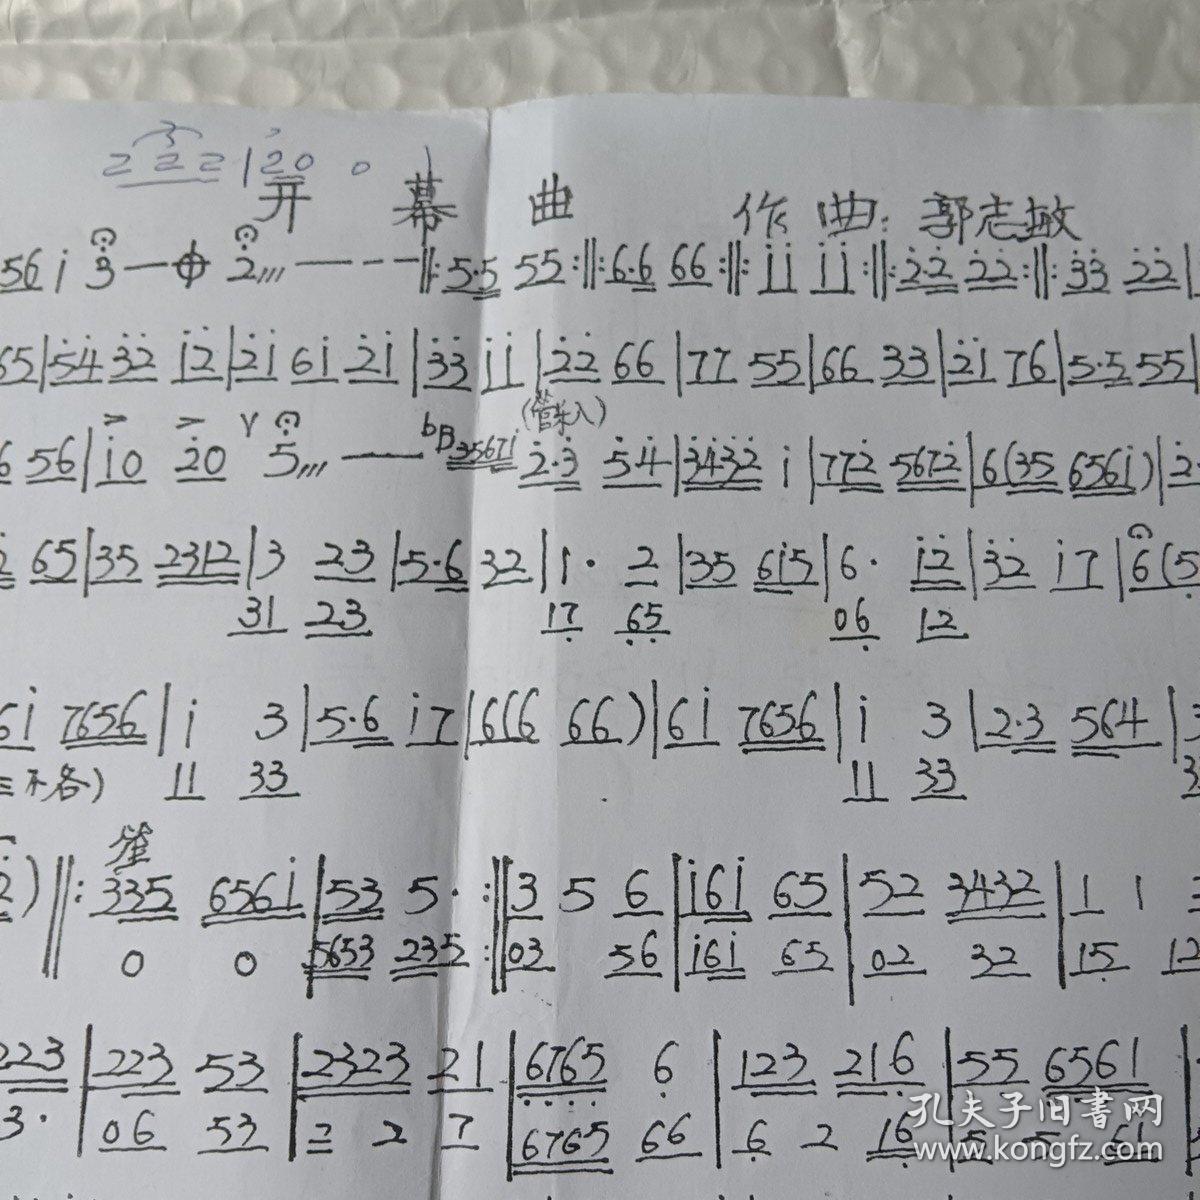 2 2 2 | 20 0
开 幕 曲 作曲:郭志敏
56 i 3 — 2 /// - - - - ‖: 5·5 55 :‖: 6·6 66 :‖: i i i i :‖: 2·2 22 :‖: 33 22 |
65 | 54 32 i2 | 2i 6i 2i | 33 i i | 22 66 | 77 55 | 66 33 | 2i 76 | 5·5 55 |
(管乐入)
6 56 | i0 20 V 5 /// — bB 3567i 2·3 54 | 3432 i | 772 5672 | 6(35 656i) | 2·
2 65 | 35 2312 | 3 23 | 5·6 32 | 1· 2 | 35 6i5 | 6· i2 | 32 i7 | 6(5
31 23 17 65 06 12
6i 7656 | i 3 | 5·6 i7 | 6(6 66) | 6i 7656 | i 3 | 2·3 564 |
11 33 11 33
2) ‖: 335 656i | 53 5· :‖ 3 5 6 | i6i 65 | 52 3432 | 1 1
0 0 5653 235 :‖ 03 56 i6i 65 02 32 15 12
223 | 223 53 | 2323 21 | 6765 6 | 123 216 | 55 6561 |
3· 06 53 2 2 7 6765 66 6 2 16 5 5 61
孔夫子旧书网
www.kongfz.com